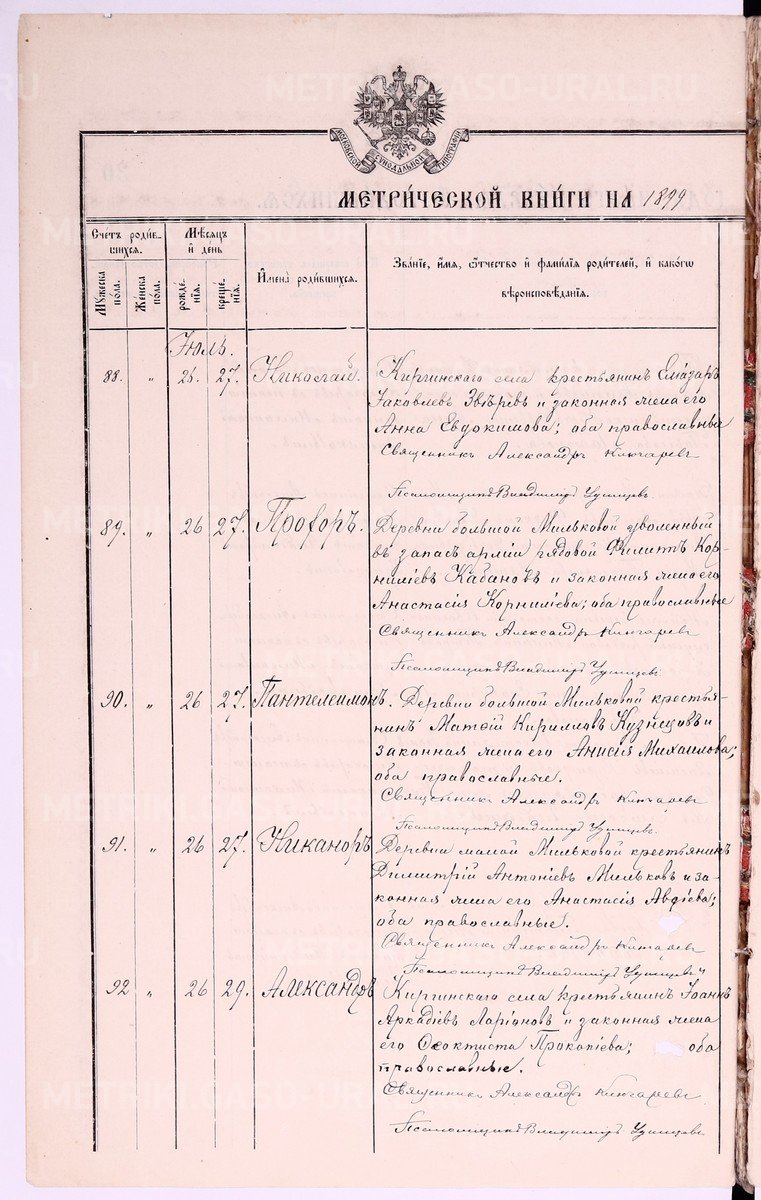 МОСКОВСКОЙ СѴНОДАЛЬНОЙ ТИПОГРАФІИ
МЕТРИЧЕСКОЙ КНИГИ НА 1899
Счетъ родив-
шихся.
Мѣсяцъ
и день
Мужеска
пола.
Женска
пола.
рожде-
нія.
креще-
нія.
Имена родившихся.
Званіе, имя, отчество и фамилія родителей, и какогѡ
вѣроисповѣданія.
Іюль.
88. „ 26. 27. Николай. Киргинскаго села крестьянинъ Елиазаръ
Іаковлевъ Звѣревъ и законная жена его
Анна Евдокимова; оба православные
Священникъ Александръ Ключаревъ
Псаломщикъ Владимиръ
89. „ 26 27. Прохоръ. Деревни большой Мильковой уволенный
въ запасъ арміи рядовой Филиппъ Кор-
ниліевъ Кабановъ и законная жена его
Анастасія Корниліева; оба православные
Священникъ Александръ Ключаревъ
Псаломщикъ Владимиръ
90. „ 26 27. Пантелеимонъ. Деревни большой Мильковой крестья-
нинъ Матѳій Кирилловъ Кузнецовъ и
законная жена его Анисія Михаилова;
оба православные.
Священникъ Александръ Ключаревъ
Псаломщикъ Владимиръ
91. „ 26 27. Никаноръ Деревни малой Мильковой крестьянинъ
Димитрій Антоніевъ Мильковъ и за-
конная жена его Анастасія Авдіева;
оба православные.
Священникъ Александръ Ключаревъ
Псаломщикъ Владимиръ
92 „ 26 29. Александръ Киргинскаго села крестьянинъ Іоаннъ
Аркадіевъ Ларіоновъ и законная жена
его Ѳеоктиста Прокопіева; оба
православные.
Священникъ Александръ Ключаревъ
Псаломщикъ Владимиръ